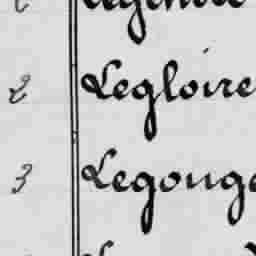 2 Legloire
3 Legouge